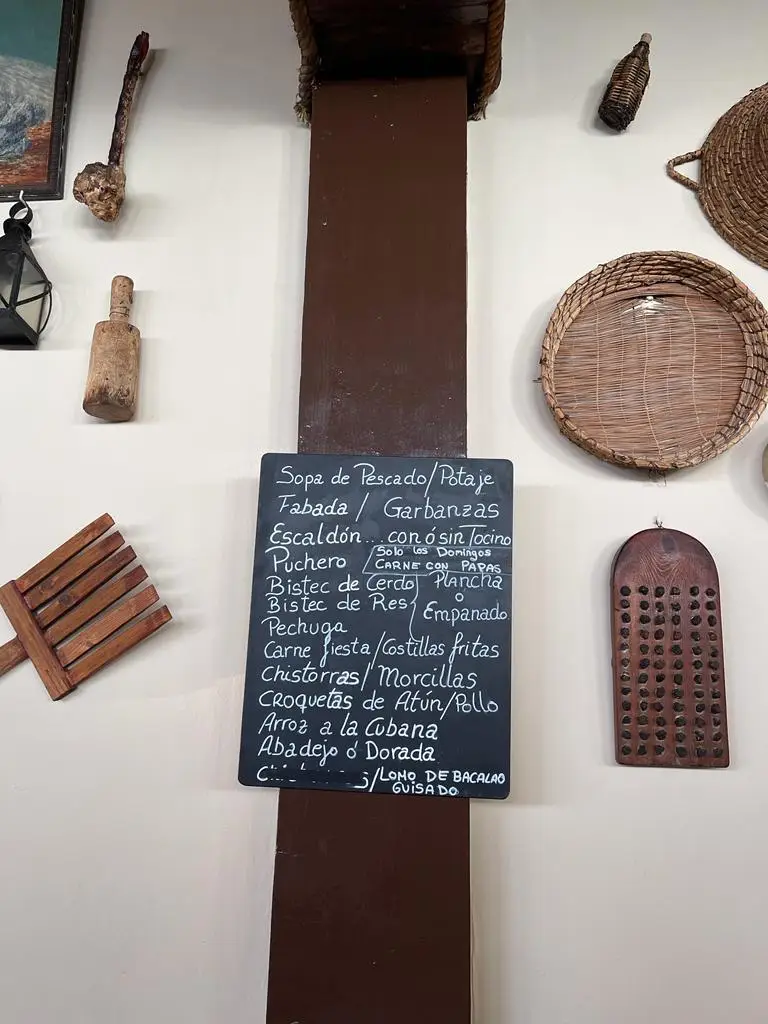 Sopa de Pescado/Potaje
Fabada / Garbanzas
Escaldón... con ó sin Tocino
Puchero Solo los Domingos
CARNE CON PAPAS
Bistec de Cerdo Plancha
Bistec de Res o
Pechuga Empanado
Carne fiesta/Costillas fritas
Chistorras/Morcillas
Croquetas de Atún/Pollo
Arroz a la Cubana
Abadejo ó Dorada
/LOMO DE BACALAO
GUISADO